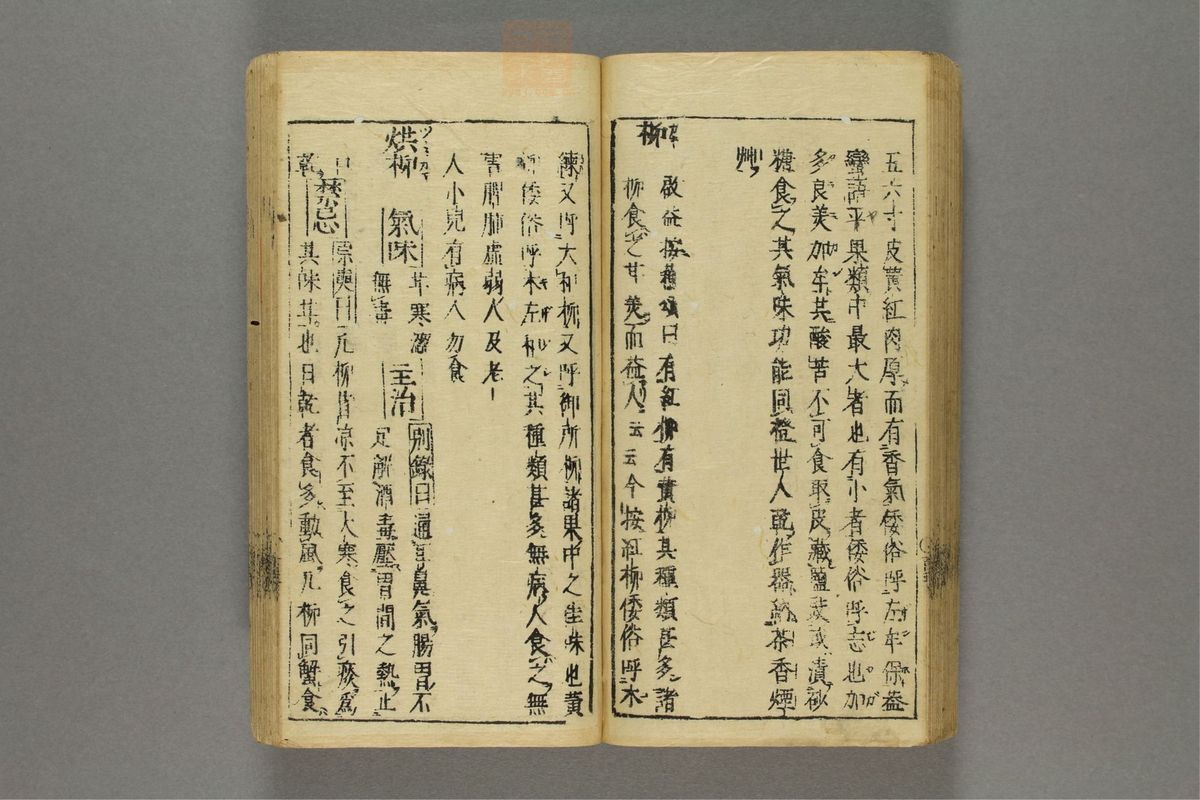 五六寸皮黄紅肉厚而有香氣倭俗呼左牟保盎
蠻語平果類中最大者也有小者倭俗呼志也加
多良美加牟其酸苦不可食取皮藏鹽或漬砂
糖食之其氣味功能同橙世人乾作器納茶香煙
艸
柿
啟益按蘇頌曰有紅柿有黄柿其種類甚多諸
柿食之甘美而益人云云今按紅柿倭俗呼木
練又呼大和柿又呼御所柿諸果中之佳味也黄
柿倭俗呼木左和之其種類甚多無病人食之無
害脾肺虚弱人及老
人小兒有病人勿食
烘柿
氣味
甘寒濇
無毒
主治
別錄曰通耳鼻氣腸胃不
足解酒毒壓胃間之熱止
口
禁忌
宗奭曰凡柿皆凉不至大寒食之引痰爲
其味甘也日乾者食多動風凡柿同蟹食